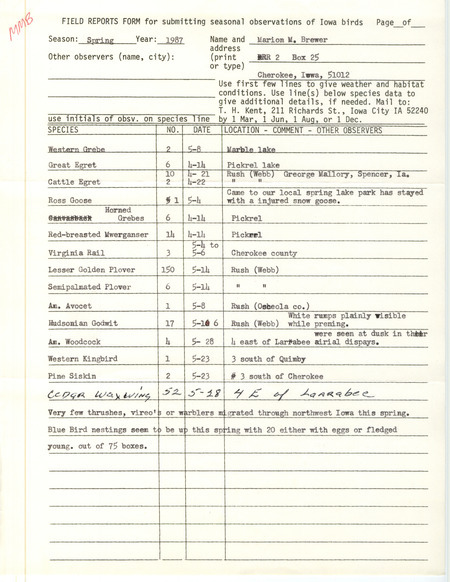 MMB
FIELD REPORTS FORM for submitting seasonal observations of Iowa birds Page__of__
Season: Spring Year: 1987 Name and Marion M. Brewer
address
Other observers (name, city): (print RR 2 Box 25
or type)
Cherokee, Iowa, 51012
Use first few lines to give weather and habitat
conditions. Use line(s) below species data to
give additional details, if needed. Mail to:
T. H. Kent, 211 Richards St., Iowa City IA 52240
use initials of obsv. on species line by 1 Mar, 1 Jun, 1 Aug, or 1 Dec.
SPECIES NO. DATE LOCATION - COMMENT - OTHER OBSERVERS
Western Grebe 2 5-8 Marble lake
Great Egret 6 4-14 Pickrel lake
10 4- 21 Rush (Webb) Greorge Mallory, Spencer, Ia.
Cattle Egret 2 4-22 " "
Came to our local spring lake park has stayed
Ross Goose 1 5-4 with a injured snow goose.
Horned
Grebes 6 4-14 Pickrel
Red-breasted Mwerganser 14 4-14 Pickrel
5-4 to
Virginia Rail 3 5-6 Cherokee county
Lesser Golden Plover 150 5-14 Rush (Webb)
Semipalmated Plover 6 5-14 " "
Am. Avocet 1 5-8 Rush (Osheola co.)
White rumps plainly visible
Hudsonian Godwit 17 5-16 6 Rush (Webb) while prening.
were seen at dusk in their
Am. Woodcock 4 5- 28 4 east of Larrabee airial dispays.
Western Kingbird 1 5-23 3 south of Quimby
Pine Siskin 2 5-23 # 3 south of Cherokee
Cedar Waxwing 52 5-28 4 E of Larrabee
Very few thrushes, vireo's or warblers migrated through northwest Iowa this spring.
Blue Bird nestings seem to be up this spring with 20 either with eggs or fledged
young. out of 75 boxes.